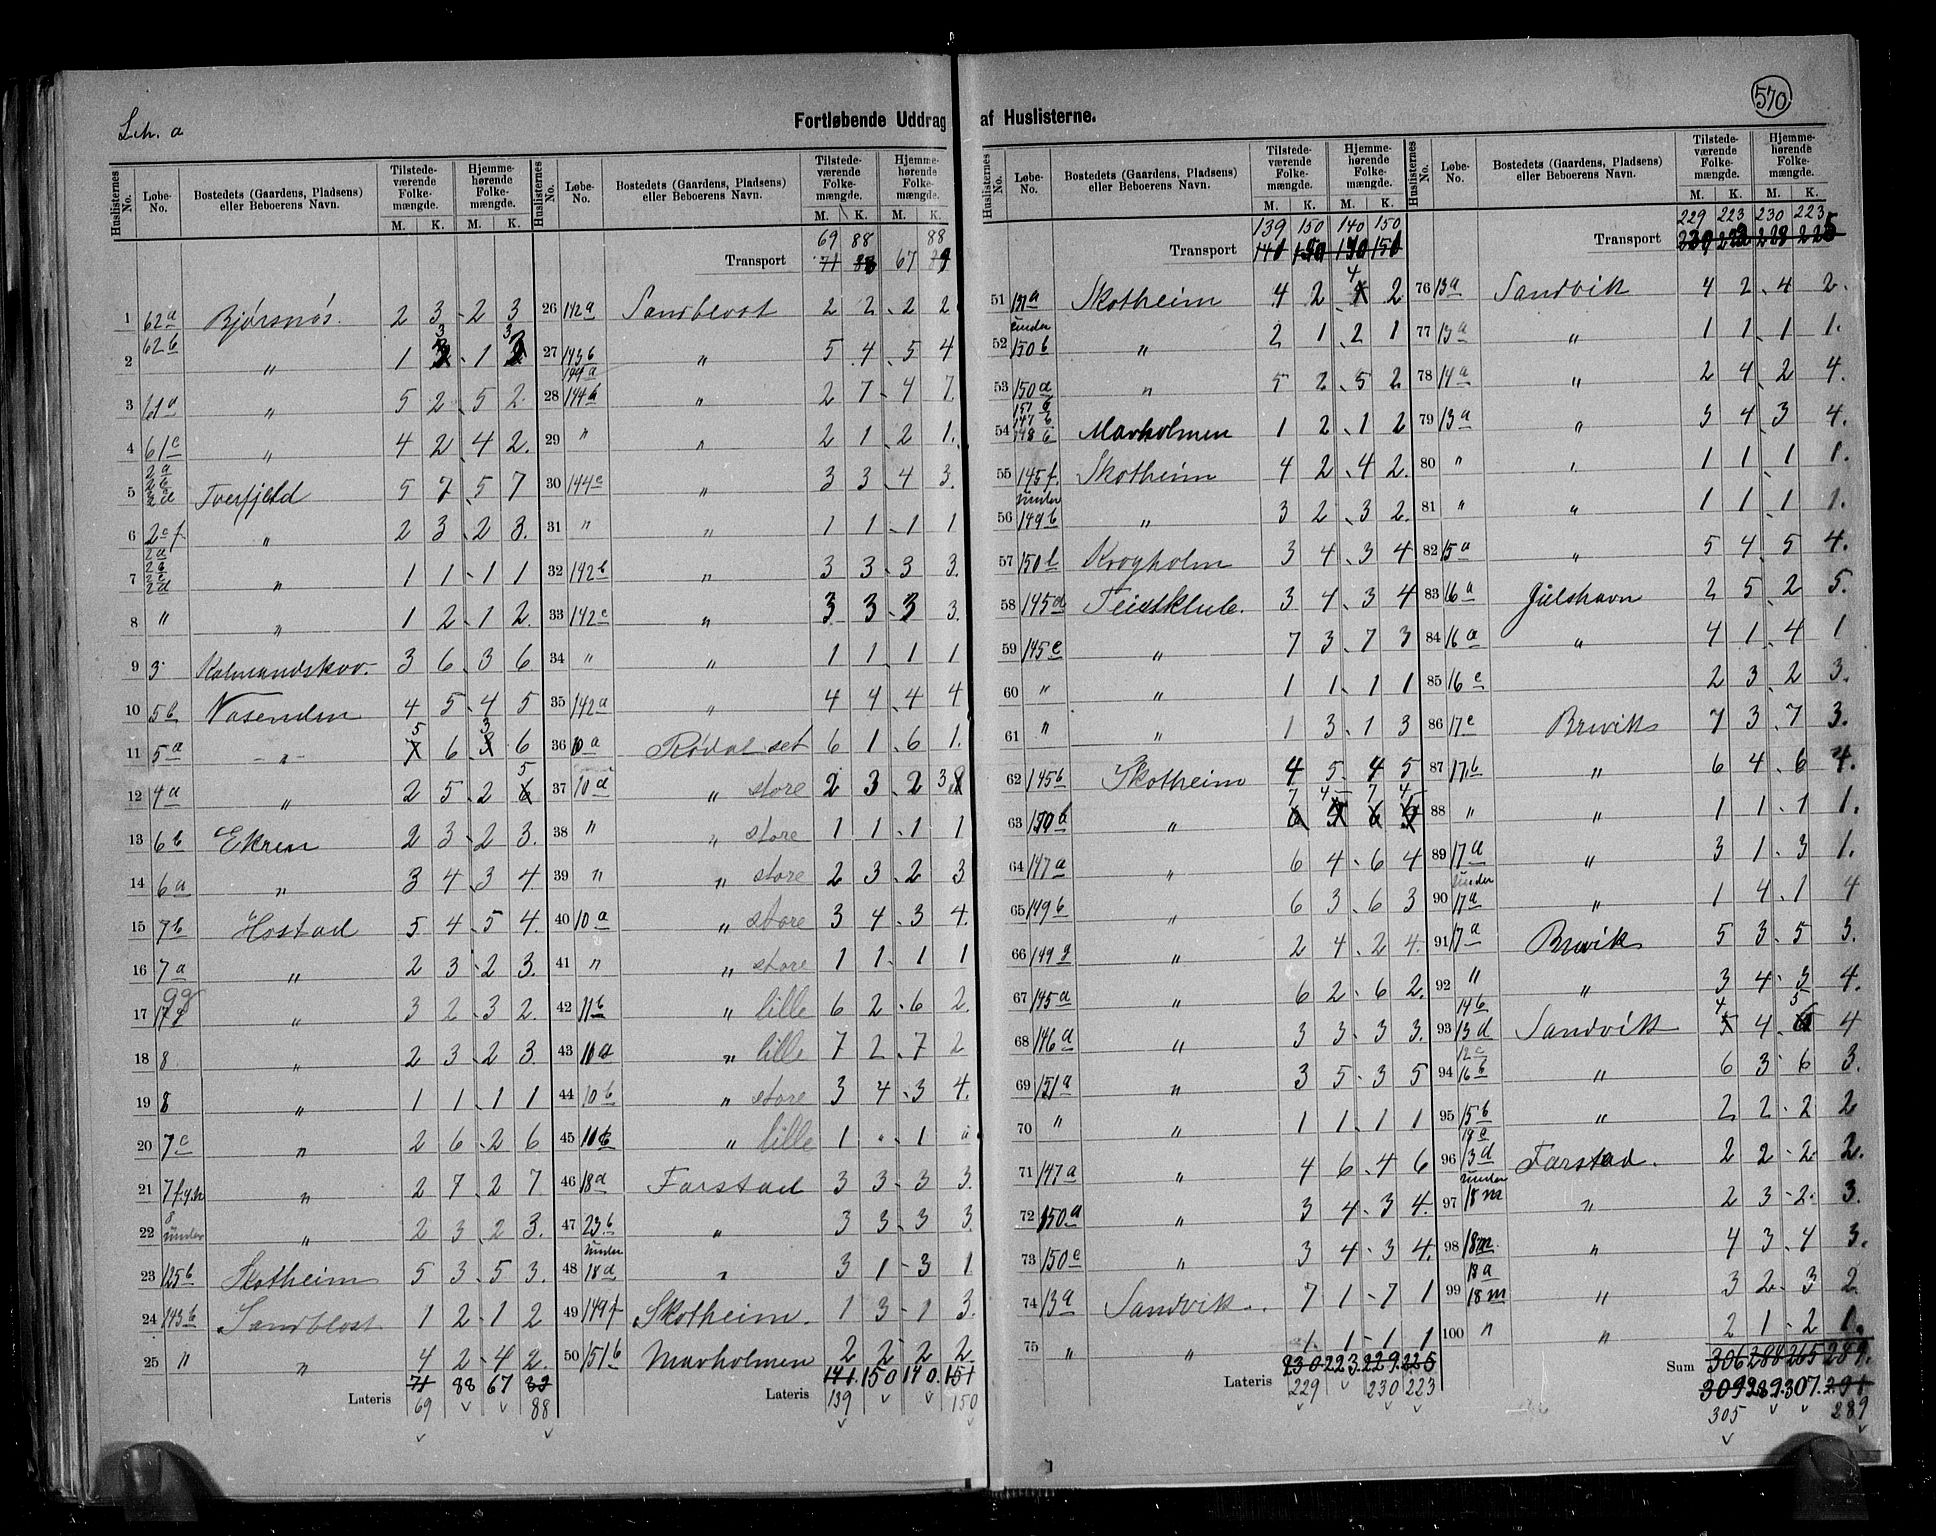 Lit. a
570
Fortløbende Uddrag af Huslisterne.
Huslisternes No. Løbe-No. Bostedets (Gaardens, Pladsens) eller Beboerens Navn. Tilstedeværende Folkemængde. M. K. Hjemmehørende Folkemængde. M. K.
1 62a Bjørsnøs. 2 3 2 3
2 62b " 1 3 1 3
3 61a " 5 2 5 2
4 61c " 4 2 4 2
5 2a 2b Tverfjeld 5 7 5 7
6 2c f " 2 3 2 3
7 2a 2b 2c 2d " 1 1 1 1
8 " " 1 2 1 2
9 3 Kalmandskov 3 6 3 6
10 5b Nasenden 4 5 4 5
11 5a " 5 6 3 6
12 4a " 2 5 2 5
13 6b Ekren 2 3 2 3
14 6a " 3 4 3 4
15 7b Hostad 5 4 5 4
16 7a " 2 3 2 3
17 " 3 2 3 2
18 8 " 2 3 2 3
19 8 " 1 1 1 1
20 7c " 2 6 2 6
21 7 f.g.h " 2 7 2 7
22 8 under " 2 3 2 3
23 125b Skotheim 5 3 5 3
24 143b Sandblost 1 2 1 2
25 " " 4 2 4 2
Lateris 71 88 67 89
69 88
Transport 71 88 67 89
69 88 88
26 142a Sandblost 2 2 2 2
27 143b " 5 4 5 4
28 144a 144b " 2 7 4 7
29 " " 2 1 2 1
30 144c " 3 3 4 3
31 " " 1 1 1 1
32 142b " 3 3 3 3
33 142c " 3 3 3 3
34 " " 1 1 1 1
35 142a " 4 4 4 4
36 10a Rødal set 6 1 6 1
37 10d " store 2 3 2 3
38 " " store 1 1 1 1
39 " " store 2 3 2 3
40 10a " store 3 4 3 4
41 " " store 1 1 1 1
42 11b " lille 6 2 6 2
43 11a " lille 7 2 7 2
44 10b " store 3 4 3 4
45 11c " lille 1 " 1 "
46 18d Farstad 3 3 3 3
47 23b " 3 3 3 3
48 under 18d " 3 1 3 1
49 149f Skotheim. 1 3 1 3
50 151b Mavholmen 2 2 2 2
Lateris 141 150 140 151
139 150
Transport 141 150 140 151
139 150 140 150
51 Skotheim 4 2 4 2
52 under 150b " 2 1 2 1
53 150a " 5 2 5 2
54 151b 147b 148b Mavholmen 1 2 1 2
55 145f. Skotheim 4 2 4 2
56 under 149b " 3 2 3 2
57 150b Krogholm 3 4 3 4
58 145d Teistklub. 3 4 3 4
59 145e " 7 3 7 3
60 " " 1 1 1 1
61 " " 1 3 1 3
62 145b Skotheim 4 5 4 5
63 " 7 4 7 4
64 147a " 6 4 6 4
65 149b " 6 3 6 3
66 149g " 2 4 2 4
67 145a " 6 2 6 2
68 146a " 3 3 3 3
69 151a " 3 5 3 5
70 " " 1 1 1 1
71 147a " 4 6 4 6
72 150a " 3 4 3 4
73 150c " 3 4 3 4
74 13a Sandvik 7 1 7 1
75 " " 1 1 1 1
Lateris 230 223 229 225
229 230 223
Transport 230 222 228 225
229 223 230 223
76 13a Sandvik 4 2 4 2
77 13a " 1 1 1 1
78 14a " 2 4 2 4
79 13a " 3 4 3 4
80 " " 1 1 1 1
81 " " 1 1 1 1
82 15a " 5 4 5 4
83 16a Julshavn 2 5 2 5
84 16a " 4 1 4 1
85 16c 2 3 2 3
86 17c Brevik 7 3 7 3
87 17b " 6 4 6 4
88 " " 1 1 1 1
89 17a " 3 1 3 1
90 under 17a " 1 4 1 4
91 17a Brevik 5 3 5 3
92 " " 3 4 3 4
93 14b 13d Sandvik 4 4 5 4
94 12c 16b " 6 3 6 3
95 15b " 2 2 2 2
96 19a 13d Farstad. 2 2 2 2
97 under 18m " 2 3 2 3
98 18m. " 4 3 4 3
99 18a 18m " 3 2 3 2
100 " " 2 1 2 1
Sum 306 288 265 289
309 289 307 291
305 289